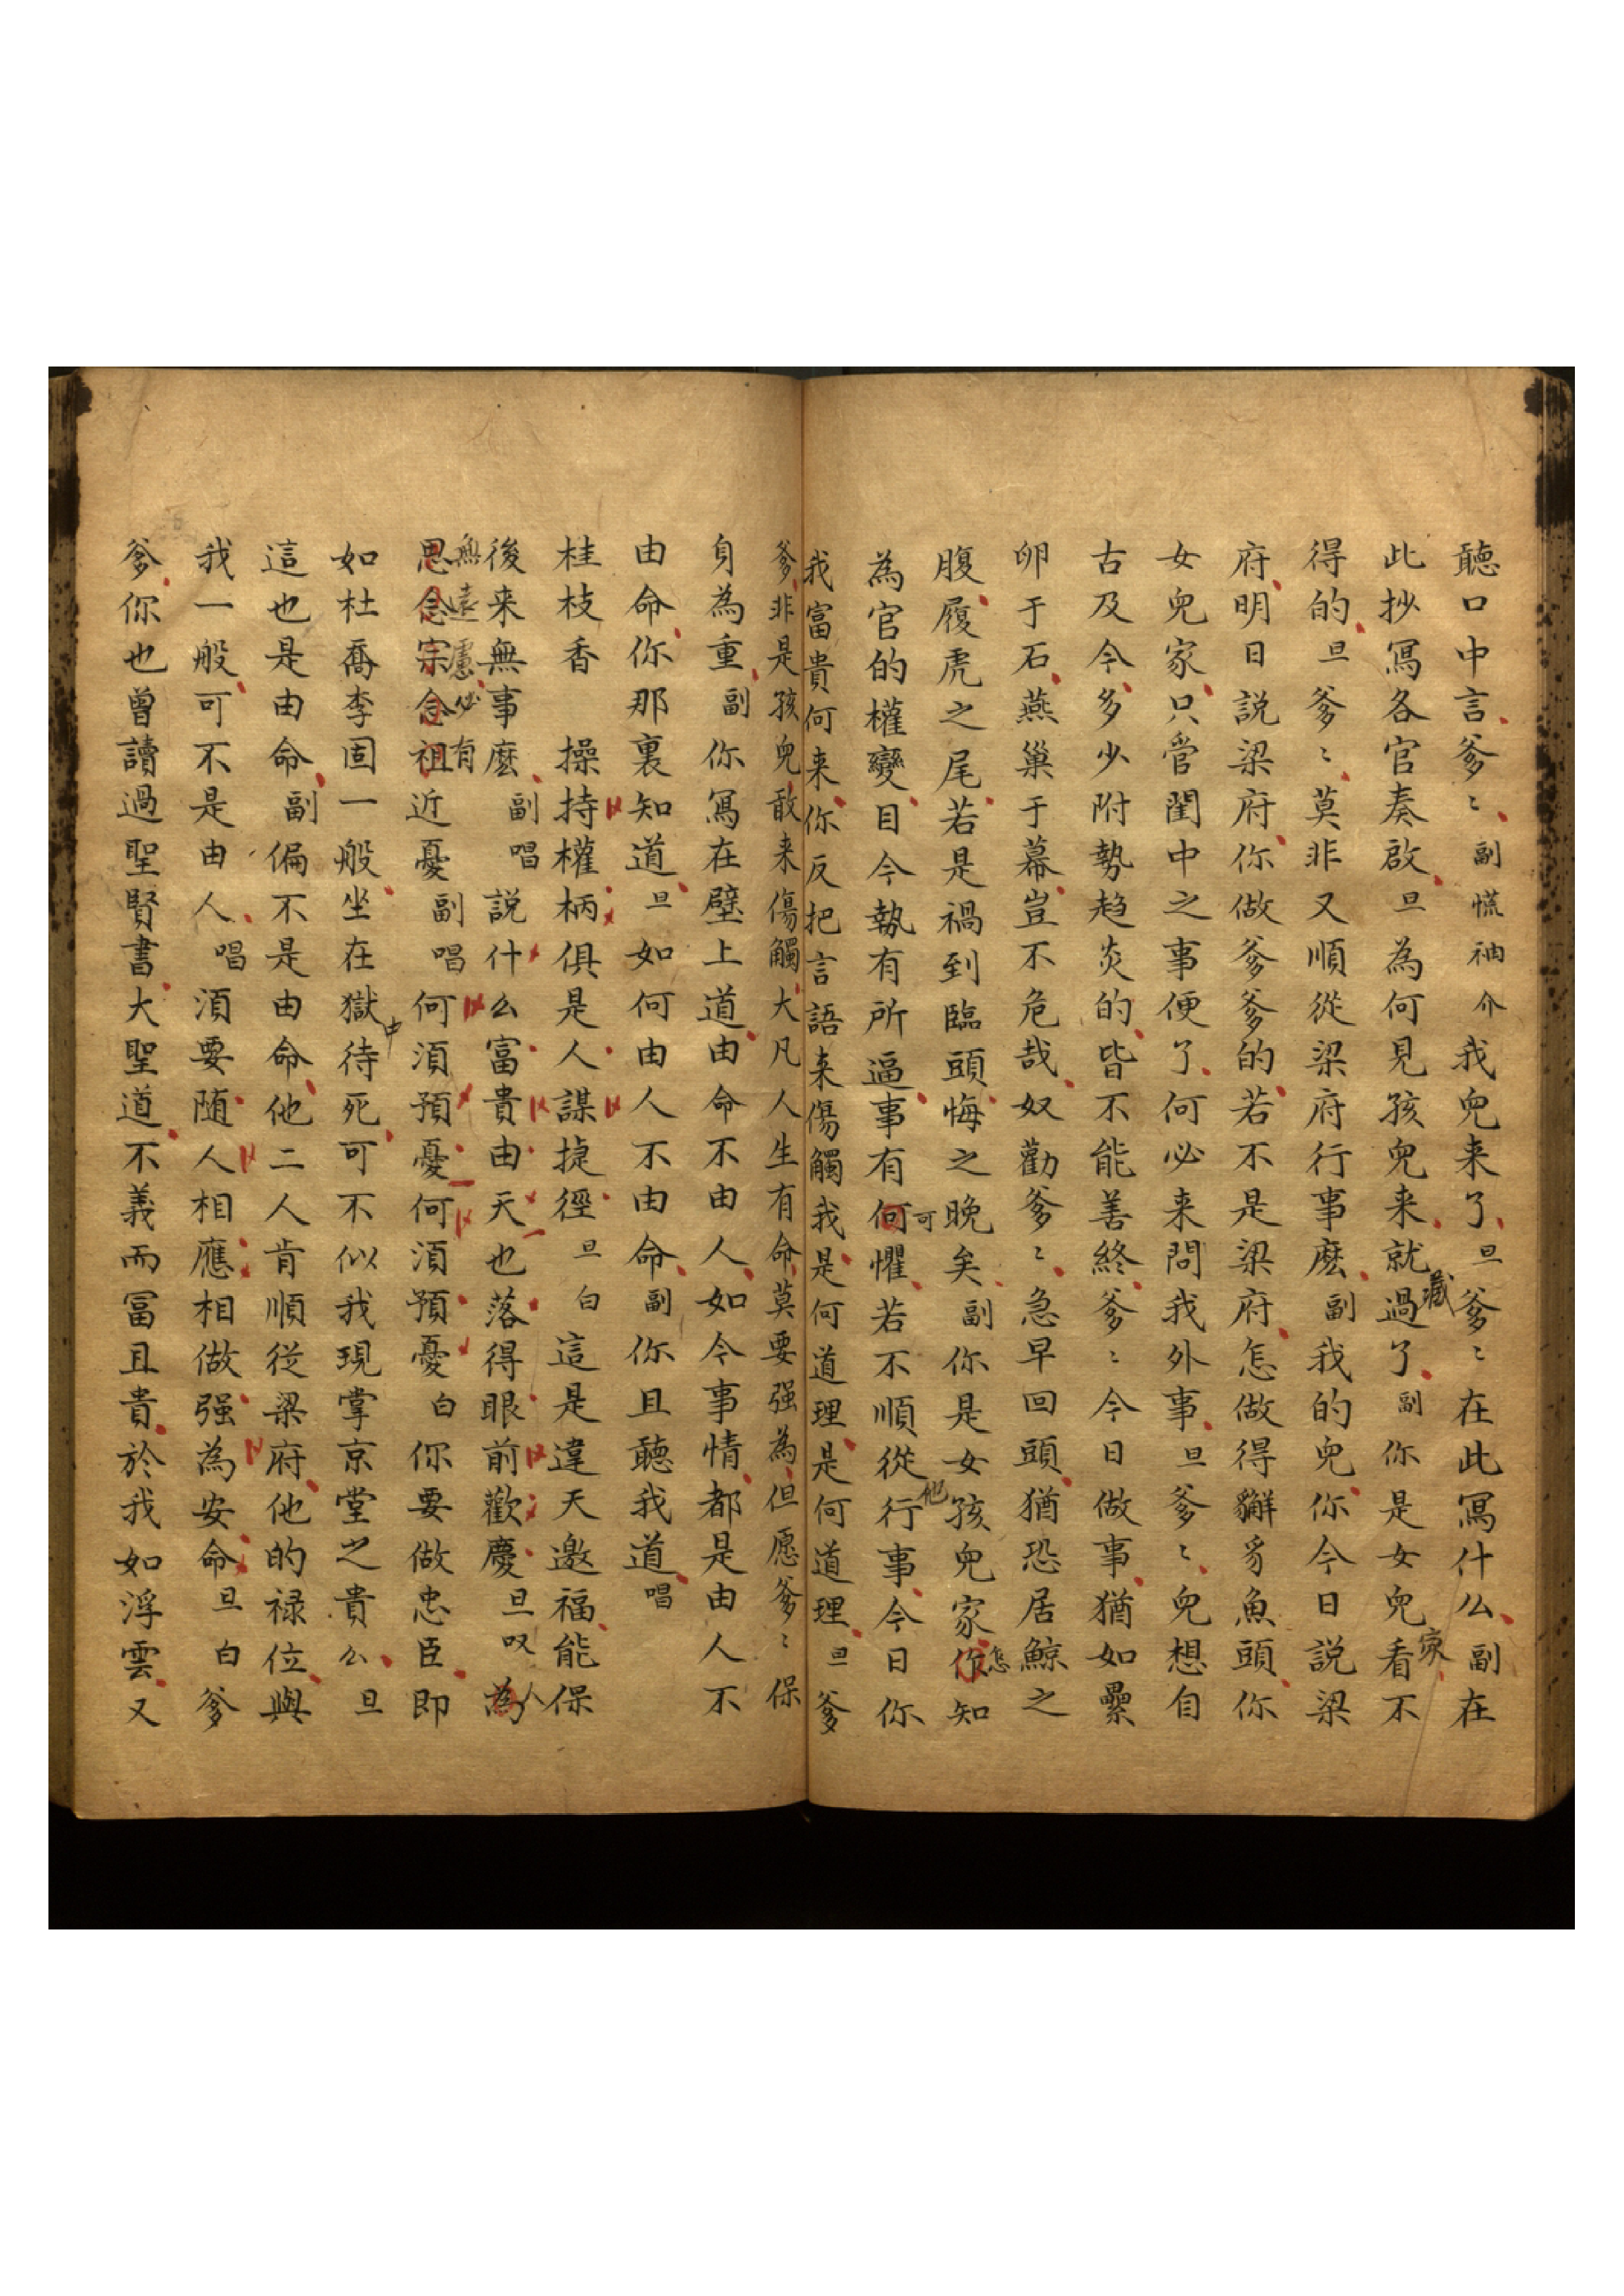 聽口中言爹〻副慌袖介我兒来了旦爹〻在此寫什么副在
此抄寫各官奏啟旦為何見孩兒来就藏過了副你是女兒家看不
得的旦爹〻莫非又順從梁府行事麽副我的兒你今日説梁
府明日説梁府你做爹爹的若不是梁府怎做得獬豸魚頭你
女兒家只管閨中之事便了何必来問我外事旦爹〻兒想自
古及今多少附勢趋炎的皆不能善終爹〻今日做事猶如壘
卵于石燕巢于幕豈不危哉奴勸爹〻急早回頭猶恐居鯨之
腹履虎之尾若是禍到臨頭悔之晚矣副你是女孩兒家怎知
為官的權變目今執有所逼事有可懼若不順從他行事今日你
我富貴何来你反把言語来傷觸我是何道理是何道理旦爹
爹非是孩兒敢来傷觸大凡人生有命莫要强為但愿爹〻保
身為重副你寫在壁上道由命不由人如今事情都是由人不
由命你那裏知道旦如何由人不由命副你且聽我道唱
桂枝香 操持權柄俱是人謀捷徑旦白這是違天邀福能保
後来無事麽副唱説什么富貴由天也落得眼前歡慶旦叹人
無遠慮必有近憂副唱何湏預憂何湏預憂白你要做忠臣即
如杜喬李固一般坐在獄中待死可不似我現掌京堂之貴么旦
這也是由命副偏不是由命他二人肯順從梁府他的禄位與
我一般可不是由人唱湏要随人相應相做强為安命旦白爹
爹你也曾讀過聖賢書大聖道不義而冨且貴於我如浮雲又